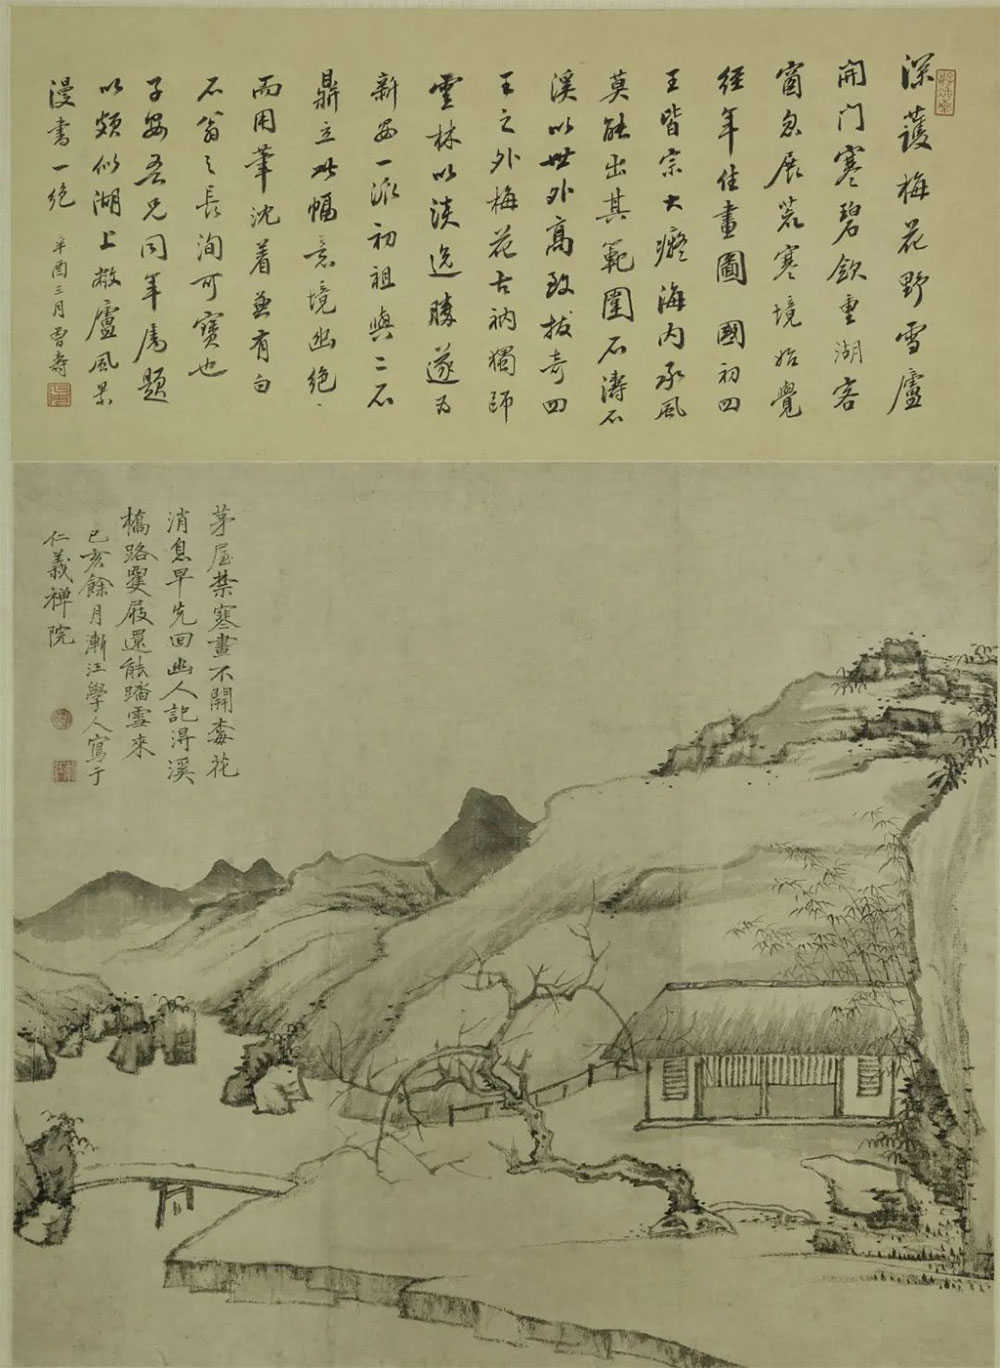 深護梅花野雪廬
開門寒碧飲重湖客
窗忽展荒寒境始覺
經年住畫圖 國初四
王皆宗大癡海内承風
莫能出其範圍石濤石
溪以世外高致拔奇四
王之外梅花古衲獨師
雲林以淡逸勝遂為
新安一派初祖與二石
鼎立此幅意境幽絕
而用筆沈着兼有白
石翁之長洵可寶也
子安吾兄同年屬題
以頗似湖上敝廬風景
漫書一絕
辛酉三月曾壽
茅屋禁寒晝不開梅花
消息早先回幽人記得溪
橋路蠟屐還能踏雪來
己亥餘月漸江學人寫于
仁義禪院